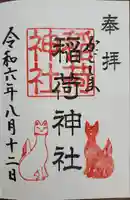 奉拝
稲荷神社
神社
令和六年八月十二日